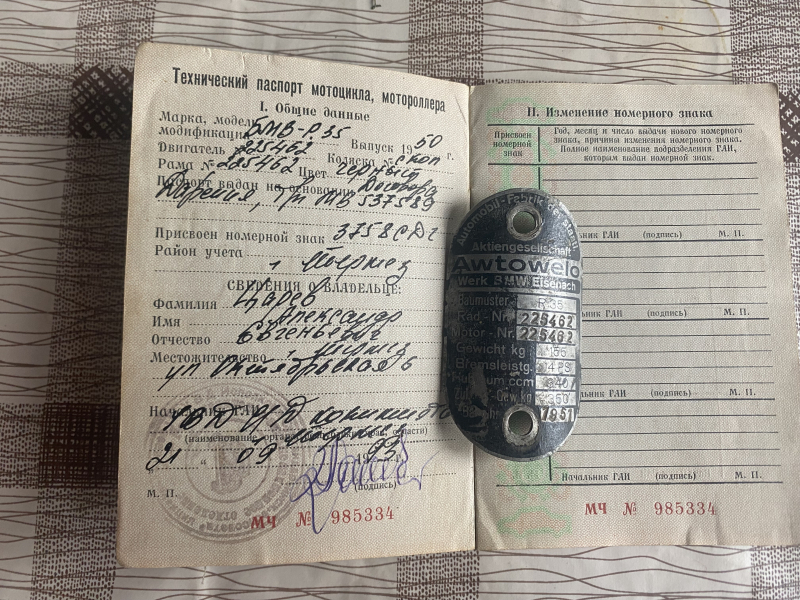 Технический паспорт мотоцикла, мотороллера
I. Общие данные
Марка, модель,
модификация БМВ-Р35 Выпуск 1950 г.
Двигатель № 225462 Коляска №
Рама № 225462 Цвет черный
Паспорт выдан на основании Договора
МВ 537589
Присвоен номерной знак 3758
Район учета г.
СВЕДЕНИЯ О ВЛАДЕЛЬЦЕ:
Фамилия Царев
Имя Александр
Отчество Евгеньевич
Местожительство г.
ул Октябрьская 6
Начальник ГАИ
21 " 09 1993
М. П. (подпись)
МЧ № 985334
II. Изменение номерного знака
Присвоен номерной знак
Год, месяц и число выдачи нового номерного знака, причина изменения номерного знака.
Полное наименование подразделения ГАИ, которым выдан номерной знак.
Начальник ГАИ (подпись) М. П.
Начальник ГАИ (подпись) М. П.
Начальник ГАИ (подпись) М. П.
Начальник ГАИ (подпись) М. П.
МЧ № 985334
Automobil-Fabrik der Staatl.
Aktiengesellschaft
Awtowelo
Werk BMW Eisenach
Baumuster R 35
Rad.-Nr. 225462
Motor-Nr. 225462
Gewicht kg 155
Bremsleistg. 14 PS
ccm 340
Zul. Ges.-Gew. kg 350
1951